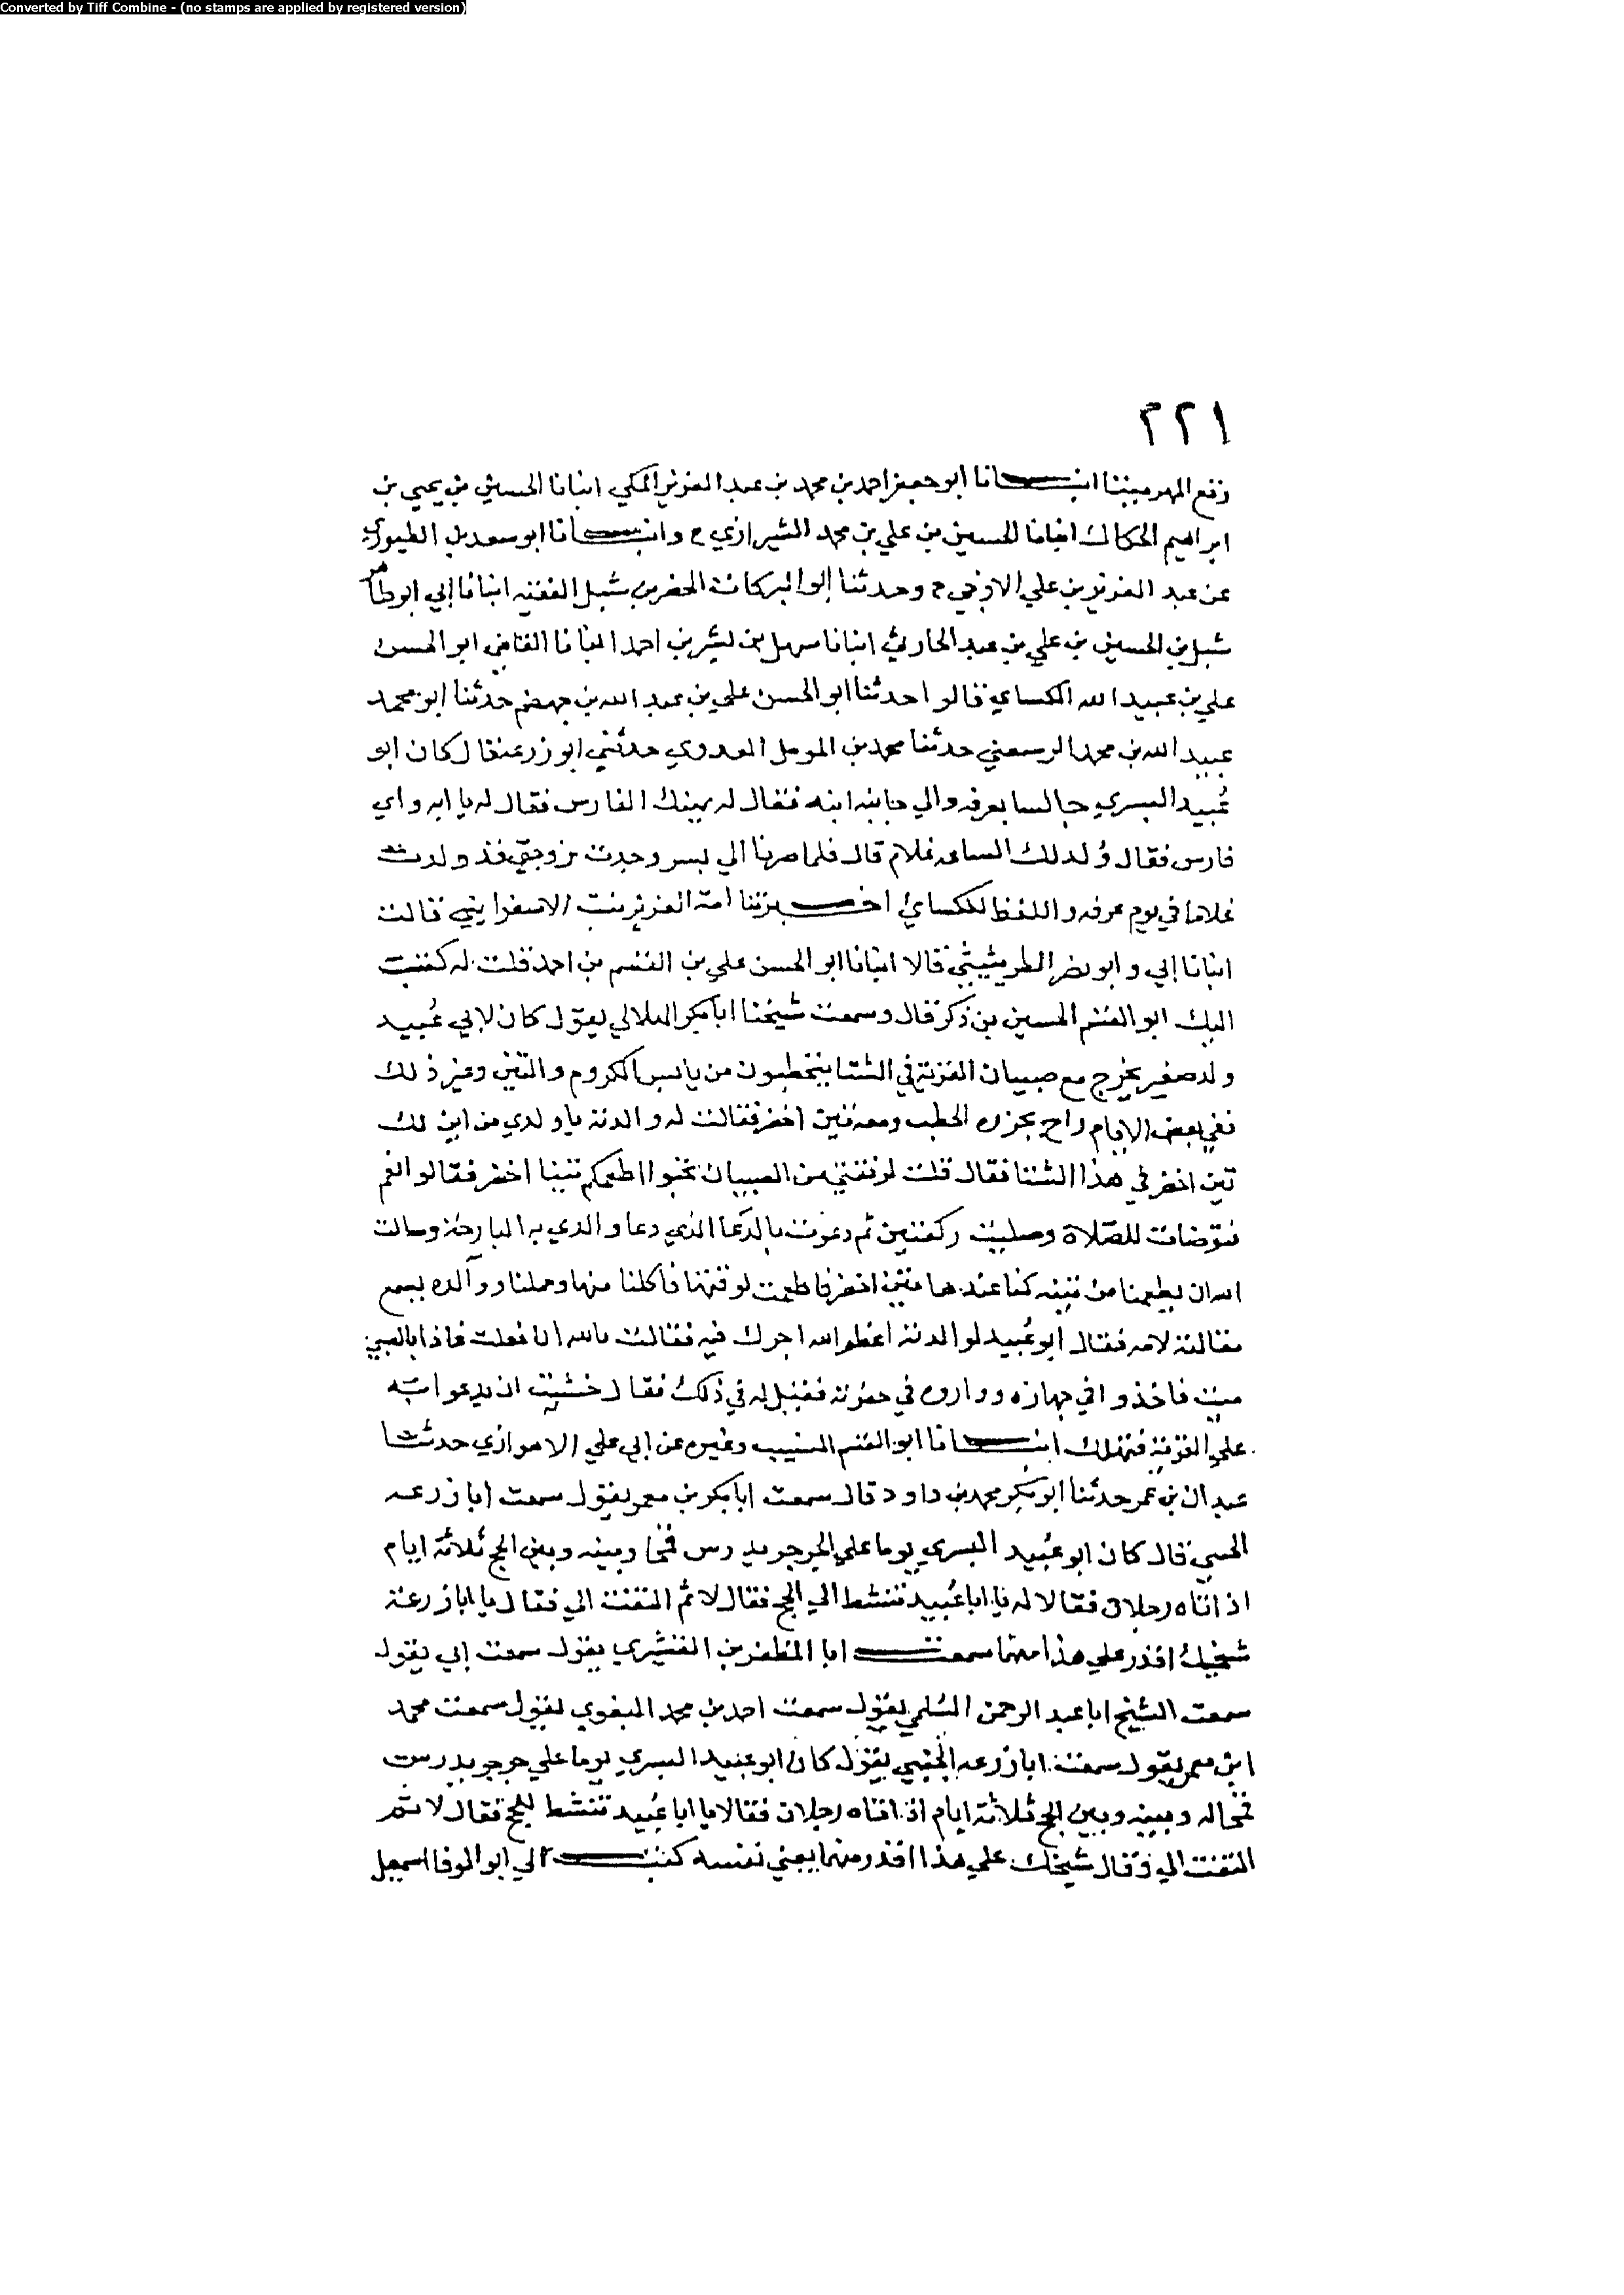 Converted by Tiff Combine - (no stamps are applied by registered version)
٢٢١
دفع المهر ميتنا انبـــانا ابو جعفر احمد بن محمد بن عبد العزيز المكي انبانا الحسين بن يحيي بن
ابراهيم الحكاك انبانا الحسين بن علي بن محمد الشيرازي ح وانبـــانا ابو سعد بن الطيوري
عن عبد العزيز بن علي الازجي ح وحدثنا ابو البركات الخضر بن شبل الفقيه انبانا ابي ابو طاهر
شبل بن الحسين بن علي بن عبد الحارثي انبانا سهل بن بشر بن احمد انبانا القاضي ابو الحسن
علي بن عبيد الله الكساي قالوا حدثنا ابو الحسن علي بن عبد الله بن جهضم حدثنا ابو محمد
عبيد الله بن محمد الرسعني حدثنا محمد بن المومل العدوي حدثني ابو زرعة قال كان ابو
عُبيد البسري جالسا بعرفه والي جانبه ابنه فقال له يهنك الفارس فقال له يا ابه واي
فارس فقال وُلد لك الساعه غلام قال فلما صرنا الي بسر وجدت زوجتي قد ولدت
غلاما في يوم عرفه واللفظ للكساي اخـــبرتنا امة العزيز بنت الاسفرايني قالت
انبانا ابي وابو نصر الطريثيثي قالا انبانا ابو الحسن علي بن القسم بن احمد قلت له كتبت
اليك ابو القسم الحسين بن ذكر قال وسمعت شيخنا ابا بكر الهلالي يقول كان لابي عُبيد
ولد صغير يخرج مع صبيان القرية في الشتا يتحطبون من يابس الكروم والتين وغير ذلك
ففي بعض الايام راح بجزره الحطب ومعه تين اخضر فقالت له والدته يا ولدي من اين لك
تين اخضر في هذا الشتا فقال قلت لرفقتي من الصبيان تحبوا اطعمكم تينا اخضر فقالوا نعم
فتوضات للصلاة وصليت ركعتين ثم دعوت بالدعا الذي دعا والدي به البارحة وسالت
الله ان يطعمنا من تينه كنا عندها تين اخضر فاطعمت لوقتها فاكلنا منها وحملنا ووالده يسمع
مقالته لامه فقال ابو عُبيد لوالدته اعظم الله اجرك فيه فقالت بالله انا فعلت فاذا بالصبي
ميت فاخذوا في جهازه وواروه في حفرته فقيل له في ذلك فقال خشيت ان يدعوا الله
علي القرية فتهلك انبـــانا ابو القسم النسيب وغيره عن ابي علي الاهوازي حدثنا
عبدان بن عمر حدثنا ابو بكر محمد بن داود قال سمعت ابا بكر بن معمر يقول سمعت ابا زرعه
الحسبي قال كان ابو عُبيد البسري يوما علي الجرجر يدرس قمحا وبينه وبين الحج ثلاثة ايام
اذ اتاه رجلان فقالا له يا ابا عُبيد تنشط الي الحج فقال لا ثم التفت الي فقال يا ابا زرعة
شيخك اقدر علي هذا منهما سمعت ابا المظفر بن القشيري يقول سمعت ابي يقول
سمعت الشيخ ابا عبد الرحمن السُلمي يقول سمعت احمد بن محمد البغوي يقول سمعت محمد
ابن معمر يقول سمعت ابا زرعه الجنبي يقول كان ابو عبيد البسري يوما علي جرجر يدرس
قمحا له وبينه وبين الحج ثلاثة ايام اذ اتاه رجلان فقالا يا ابا عُبيد تنشط للحج فقال لا ثم
التفت الي وقال شيخك علي هذا اقدر منهما يعني نفسه كتبـــ الي ابو الوفا اسمعيل